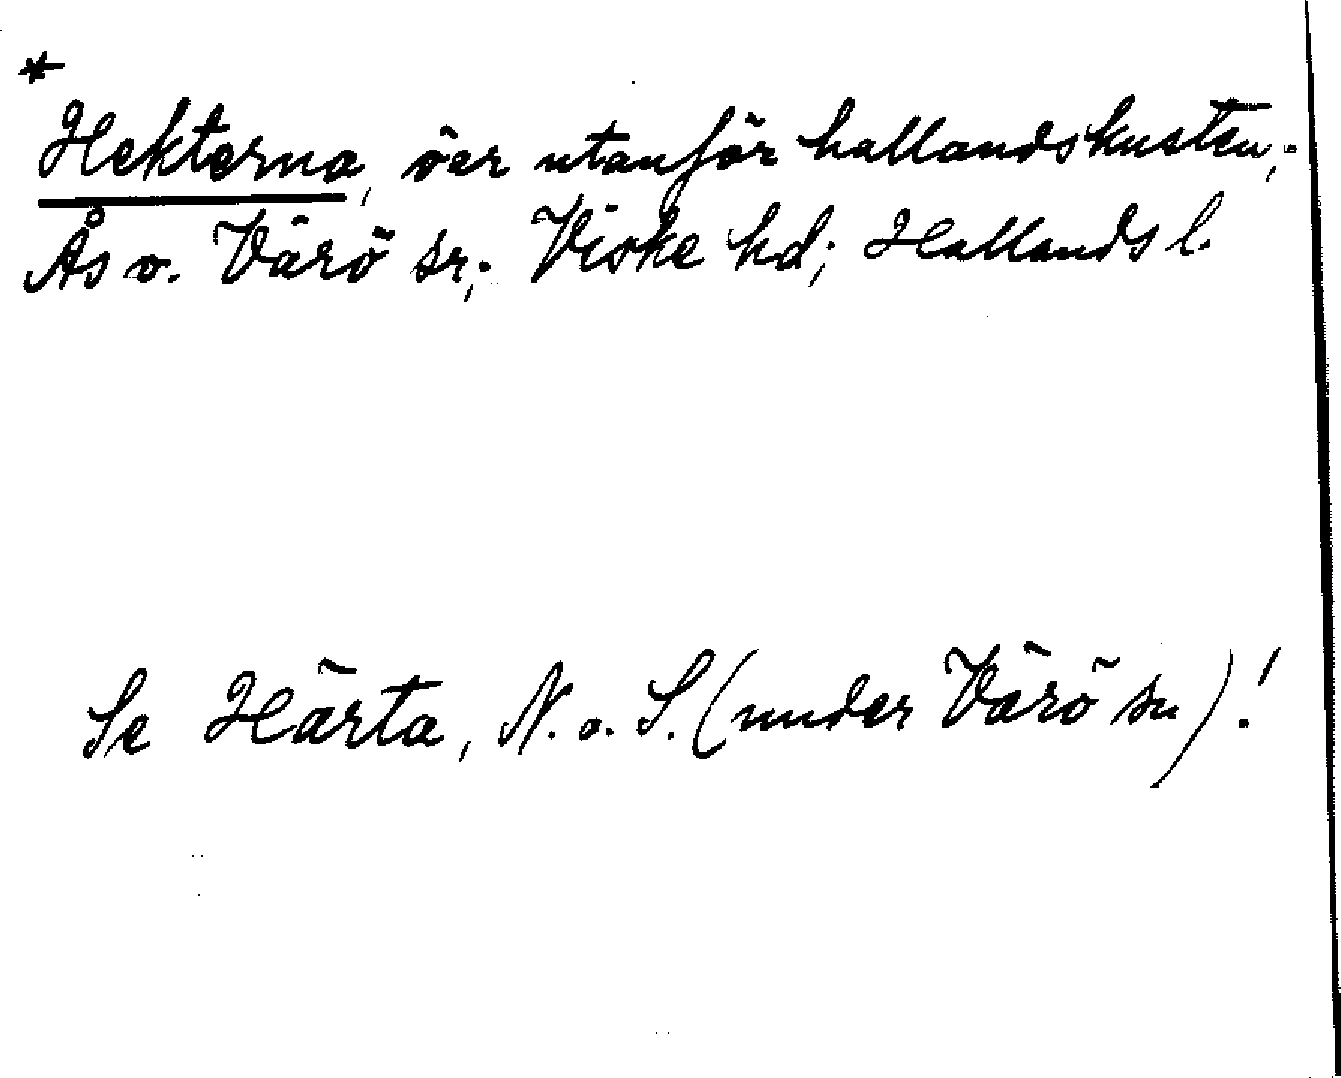 *
Hekterna, öar utanför hallandskusten;
Ås o. Värö sr; Viske hd; Hallands l.
Se Härta, N. o. S. (under Värö sn)!